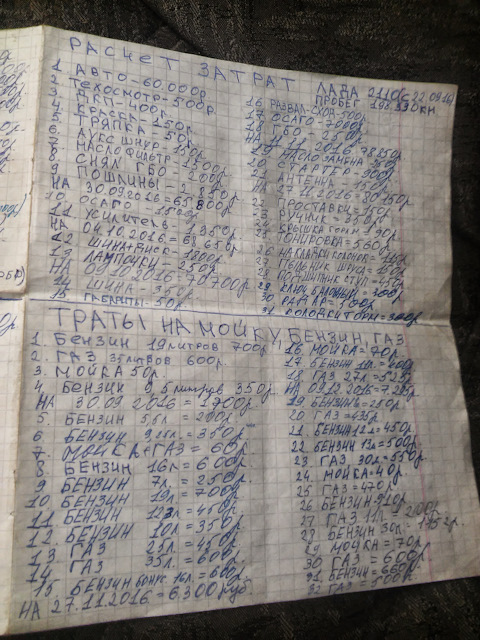 РАСЧЕТ ЗАТРАТ ЛАДА 2110 (с 22.09.16)
ПРОБЕГ 198.390КМ.
1 АВТО-60.000р.
2 ТЕХОСМОТР-500р.
3 ДКП-400р.
4 КРАСКА-150р.
5 ТРЯПКА-50р.
6 ЛУКС ШНУР-
7 МАСЛО ФИЛЬТР-
8 СНЯЛ ГБО-
9 ПОШЛИНЫ-2850р
НА 30.09.2016=65.800р
10. ОСАГО-1500р
11 УСИЛИТЕЛЬ-1350р
НА 04.10.2016=68.650р
12 ШИНА+ДИСК-1800р
13 ЛАМПОЧКИ-250р
НА 09.10.2016=70700р
14 ШИНА-350р
15 ГАБАРИТЫ-50р
16 РАЗВАЛ-СХОЖ-500р.
17 ОСАГО-7000р
18 ГБО-
НА 11.2016=78850р
19 МАСЛО ЗАМЕНА-
20 СТАРТЕР-900р
21 АНТЕННА-150р
НА 27.11.2016=80450р
22 ПРОСТАВКИ=
23 РУЧНИК=
24 КРЫШКА ГОРЛ=190р
25 ТОНИРОВКА=560р
26 НАКЛАДКИ КОЛОНОК=
27 ПЫЛЬНИК ШРУСА=
28 ПОДШИПНИК СТУП=450р
29 КЛЮЧ БАЛОННЫЙ=200р
30 РАДАР=
31 КОЛОДКИ ТОРМ=300р
ТРАТЫ НА МОЙКУ, БЕНЗИН, ГАЗ
1. БЕНЗИН 19 ЛИТРОВ 700р.
2. ГАЗ 35 ЛИТРОВ 600р.
3. МОЙКА 50р.
4 БЕНЗИН 9,5 ЛИТРОВ 350р.
НА 30.09.2016=1700р.
5 БЕНЗИН 5,5л=200р
6 БЕНЗИН 9,25л=350р
7. МОЙКА+ГАЗ=60р
8 БЕНЗИН 16л=600р
9 БЕНЗИН 7л=250р
10 БЕНЗИН 19л=700р
11 БЕНЗИН 12,3л=450р
12 БЕНЗИН 10л=350р
13 ГАЗ 25л=450р
14 ГАЗ 35л=600р
15. БЕНЗИН БОНУС. 16л=600р
НА 27.11.2016=6300руб.
16 МОЙКА=70р.
17 БЕНЗИН 11л=400р
18 ГАЗ 27л=525р
НА 09.12.2016=7295р
19 БЕНЗИН 6=250р
20 ГАЗ=435р
21 БЕНЗИН 12л=450р
22 БЕНЗИН 13л=500р
23 ГАЗ 30л=550р
24 МОЙКА=40р.
25 ГАЗ=470р
26 БЕНЗИН=910р
27 ГАЗ 111=1200р
28 БЕНЗИН 30л=1152р.
29 МОЙКА=70р
30 ГАЗ=600р
31 БЕНЗИН=660р
32 ГАЗ=500р